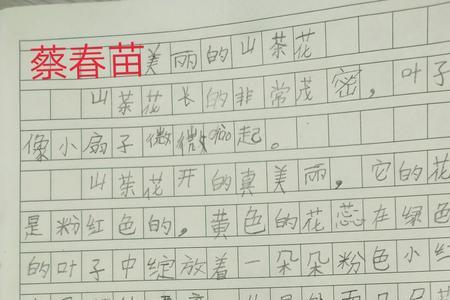 蔡春苗
美丽的山茶花
山茶花长的非常茂密，叶子
像小扇子微微起。
山茶花开的真美丽，它的花
是粉红色的，黄色的花蕊在绿色
的叶子中绽放着一朵朵粉色小红